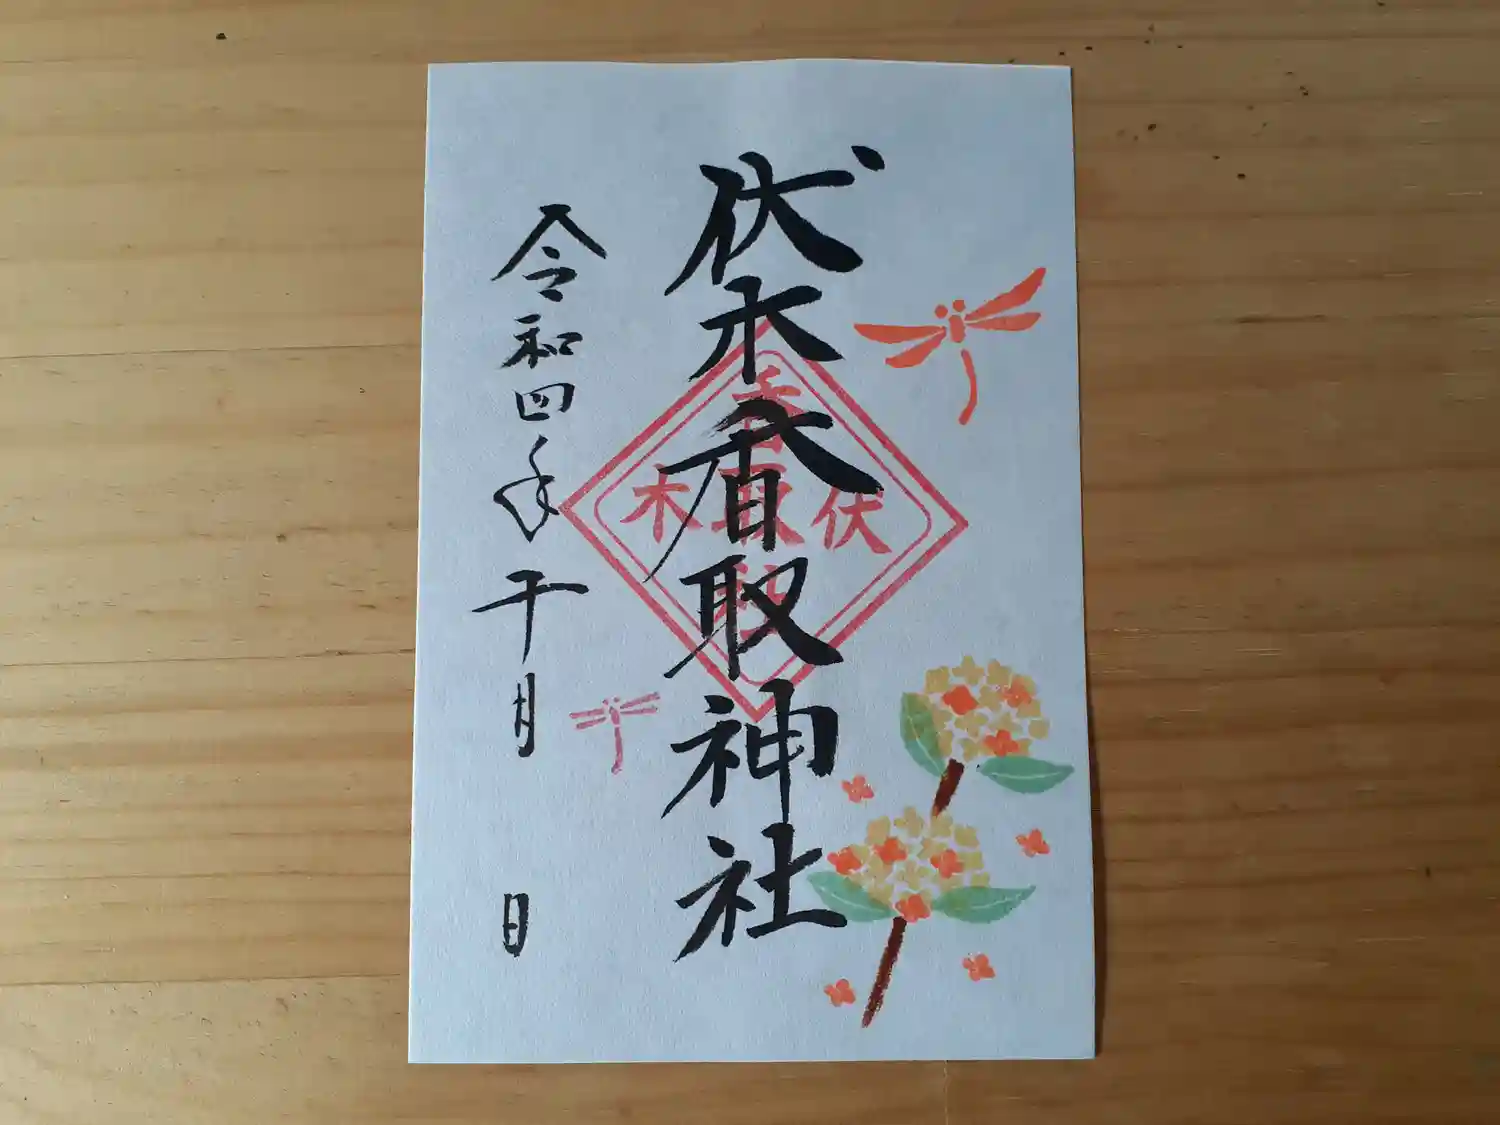 伏木香取神社
伏
香取
木
令和四年十月　日